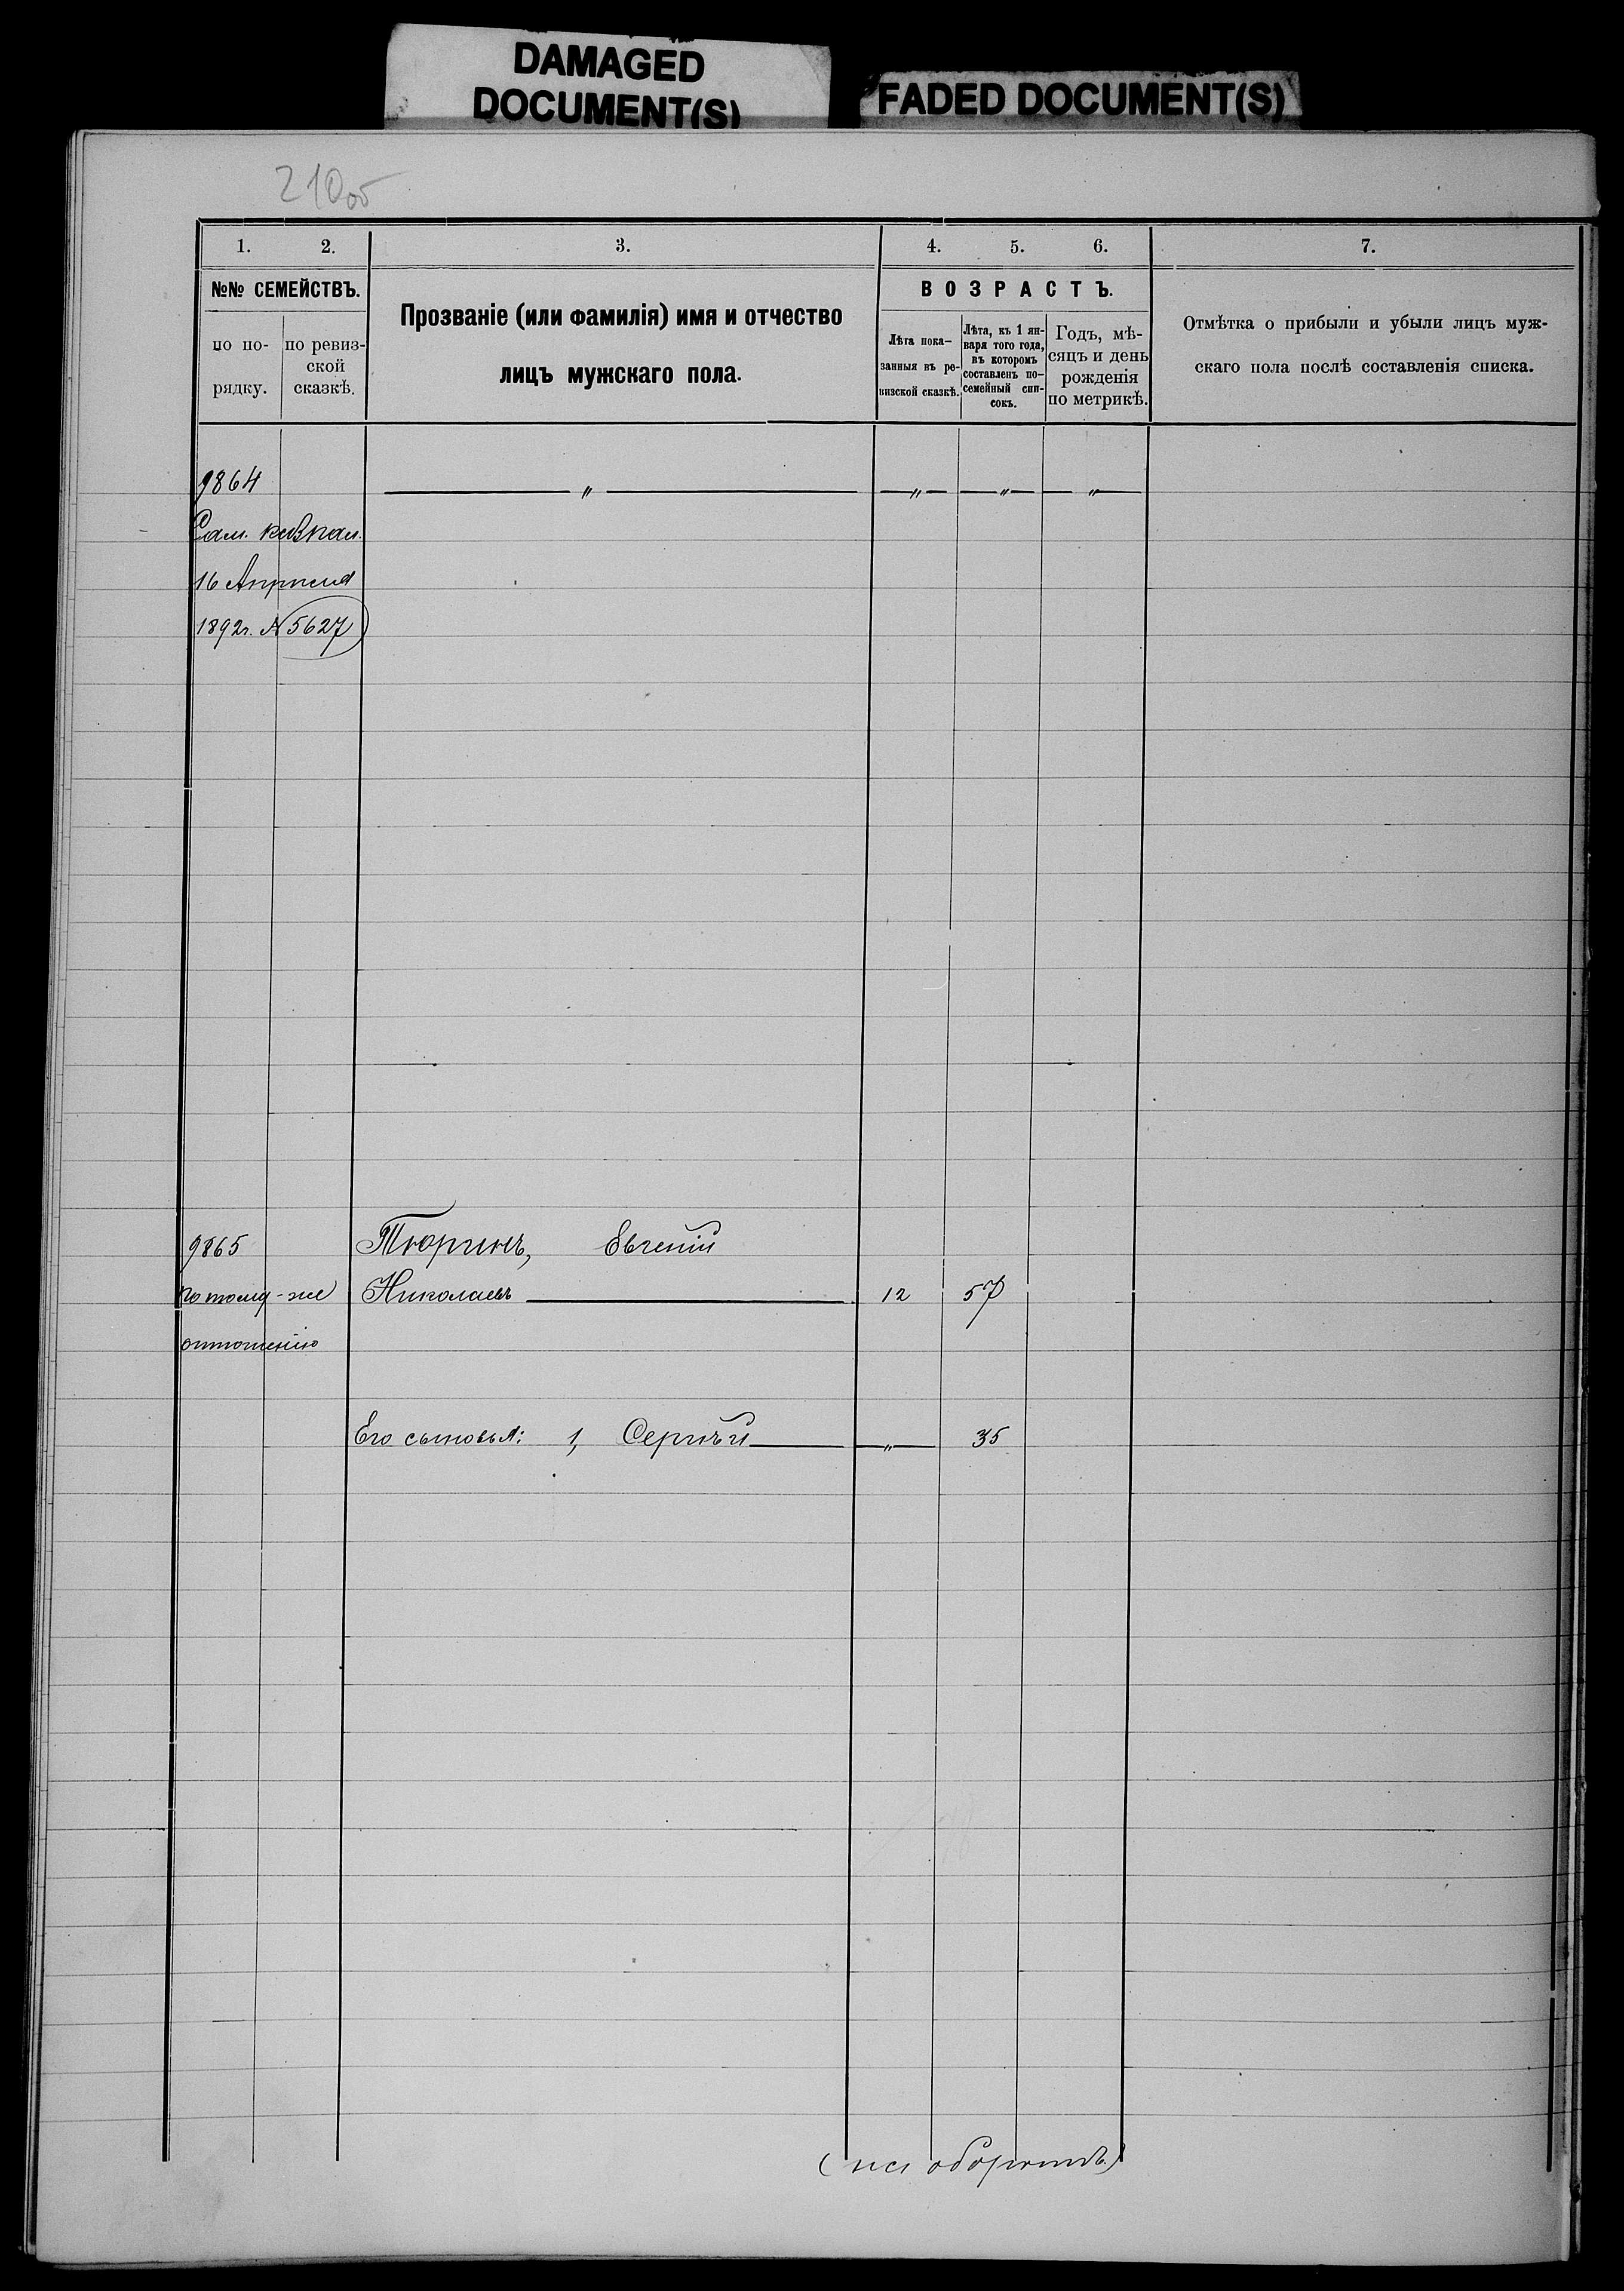 DAMAGED
DOCUMENT(S)
FADED DOCUMENT(S)
210об
1. 2. 3. 4. 5. 6. 7.
№№ СЕМЕЙСТВЪ.
по по-
рядку.
по ревиз-
ской
сказкѣ.
Прозваніе (или фамилія) имя и отчество
лицъ мужскаго пола.
ВОЗРАСТЪ.
Лѣта пока-
занныя въ ре-
визской сказкѣ.
Лѣта, къ 1 ян-
варя того года,
въ которомъ
составленъ по-
семейный спи-
сокъ.
Годъ, мѣ-
сяцъ и день
рожденія
по метрикѣ.
Отмѣтка о прибыли и убыли лицъ муж-
скаго пола послѣ составленія списка.
9864 — " — — " — — " — — " —
Сам. каз. пал.
16 Апрѣля
1892г. № 5627
9865 Тюринъ, Евгеній
по тому-же Николаевъ — 12 57
отношенію
Его сыновья: 1, Сергѣй — — " — 35
(на оборотѣ)